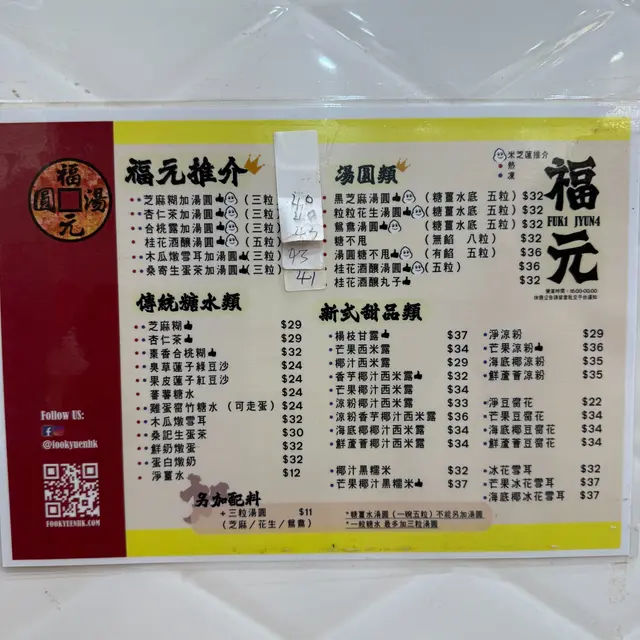 福元湯圓
Follow US:
@fookyuenhk
FOOKYUENHK.COM
福元推介
芝麻糊加湯圓 (三粒
杏仁茶加湯圓 (三粒
合桃露加湯圓 (三粒
桂花酒釀湯圓 (五粒)
木瓜燉雪耳加湯圓 (三粒)
桑寄生蛋茶加湯圓 (三粒)
40
43
41
湯圓類
黑芝麻湯圓 (糖薑水底 五粒) $32
粒粒花生湯圓 (糖薑水底 五粒) $32
鴛鴦湯圓 (糖薑水底 五粒) $32
糖不甩 (無餡 八粒) $32
湯圓糖不甩 (有餡 五粒) $36
桂花酒釀湯圓 (五粒) $36
桂花酒釀丸子 $32
米芝蓮推介
熱
凍
福元
FUK1 JYUN4
傳統糖水類
芝麻糊 $29
杏仁茶 $29
棗香合桃糊 $32
臭草蓮子綠豆沙 $24
果皮蓮子紅豆沙 $24
蕃薯糖水 $24
雞蛋腐竹糖水 (可走蛋) $24
木瓜燉雪耳 $32
桑記生蛋茶 $30
鮮奶燉蛋 $32
蛋白燉奶 $32
淨薑水 $12
新式甜品類
楊枝甘露 $37
芒果西米露 $34
椰汁西米露 $29
香芋椰汁西米露 $32
芒果椰汁西米露 $34
涼粉椰汁西米露 $33
涼粉香芋椰汁西米露 $36
海底椰椰汁西米露 $34
鮮蘆薈椰汁西米露 $34
椰汁黑糯米 $32
芒果椰汁黑糯米 $37
淨涼粉 $29
芒果涼粉 $36
海底椰涼粉 $35
鮮蘆薈涼粉 $35
淨豆腐花 $22
芒果豆腐花 $34
海底椰豆腐花 $34
鮮蘆薈豆腐花 $34
冰花雪耳 $32
芒果冰花雪耳 $37
海底椰冰花雪耳 $37
另加配料
+三粒湯圓 $11
(芝麻/花生/鴛鴦)
*糖薑水湯圓 (一碗五粒) 不能另加湯圓
*一般糖水 最多加三粒湯圓